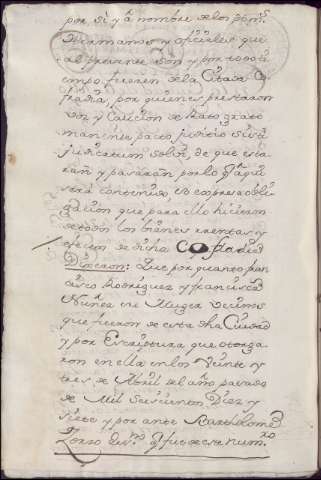 por sí y a nombre de los demas
Hermanos y oficiales que
al presente son y por todo ti
empo fueren de la Citada Co
fradia, por quienes prestaron
voz y Caucion de Rato grato
manente pacto judicio sisti
judicatum solvi, de que esta
ran y pasaran por lo q.e aqui
será contenido so expresa obli
gacion que para ello hicieron
de todos los bienes y rentas
de dicha Cofradia
Dixeron: Que por quanto fran
cisco Rodriguez y francisca
Nuñez su Muger vecinos
que fueron de esta dha Ciudad
y por Escriptura que otorga
ron en ella en los Veinte y
tres de Abril del año pasado
de Mil Seiscientos Diez y
siete y por ante Bartholome
Zorzo Ess.no q.e fue de este num.ro